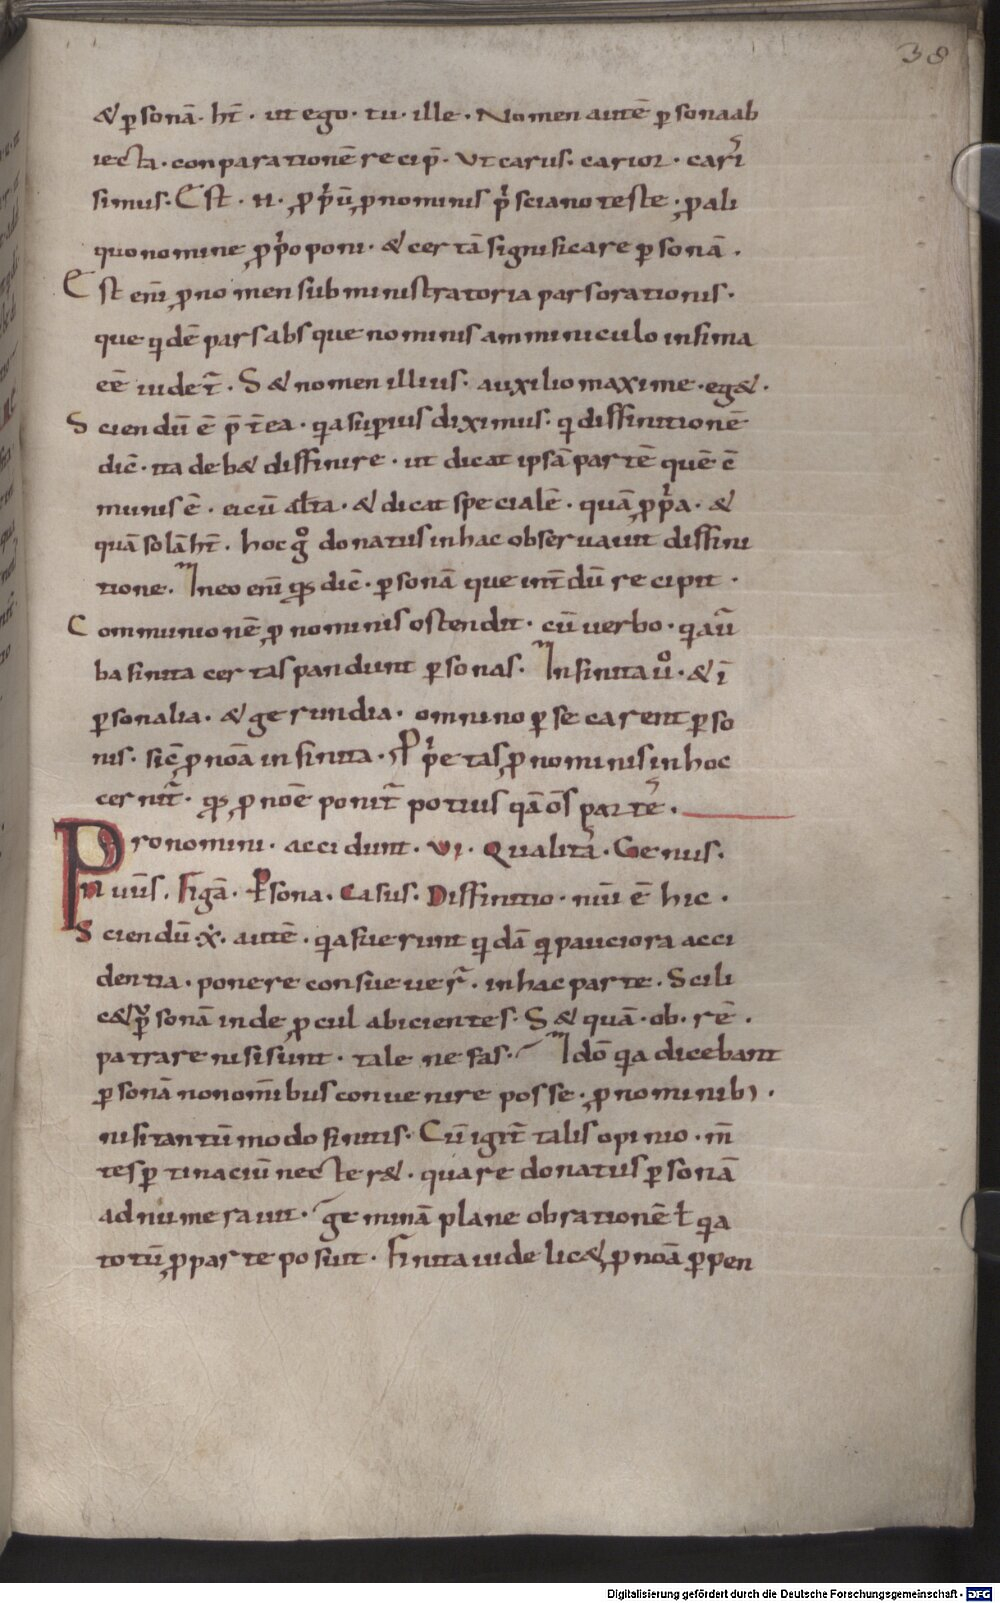 38
& psonā· hn̄t· ut ego· tu· ille· Nomen autē psona ab
iecta· conparationē recip̄· Ut carus· carior· cari
simus· Est· n· ꝓpriū ꝓnominis prisciano teste· ꝓ ali
quo nomine ꝓprio poni· & certā significare psonā·
Est enī ꝓnomen subministratoria pars orationis·
que qidē pars absque nominis amminiculo infima
eē uidet̄· S& nomen illius· auxilio maxime· eg&·
Sciendū ē p̄t̄ea· qia superius diximus· qi diffinitionē
dic̄· ita deb& diffinire· ut dicat ipsā partē quē cō
munis ē· ei cū alia· & dicat specialē· quā ꝓpria· &
quā solā hn̄t· hoc gͦ donatus in hac obseruauit diffini
tione· In eo enī qs dic̄· psonā que int̄dū recipit·
Communionē ꝓnominis ostendit· cū uerbo· qia ū
ba finita certas pandunt psonas· Infinita uͦ· & ī
psonalia· & gerundia· omnino pse carent pso
nis· sic̄ ꝓnoā infinita· Pprietas ꝓnominis in hoc
cernit̄· qs ꝓnoē ponit̄ potius qā oīs partē·
Pronomini· accidunt· VI· Qualitas· Genus·
Nuūs· Figā· Psona· Casus· Diffinitio· niū ē hic·
Sciendū· autē· qia fuerunt qidā qi pauciora acci
dentia· ponere consueuer̄· in hac parte· Scili
c& psonā inde ꝓcul abicientes· S& quā· ob· rē·
patrare nisi sunt· tale nefas· Idō qia dicebant
psonā non om̄ibus conuenire posse· ꝓnominib;·
nisi tantūmodo finitis· Cū igit̄ talis opinio· m̄
tes ptinaciū necter&· quare donatus psonā
adnumerauit· geminā plane ob rationē ł qia
totū ꝓ parte posuit· Finita uidelic& ꝓnoā ꝓ pen
Digitalisierung gefördert durch die Deutsche Forschungsgemeinschaft - DFG